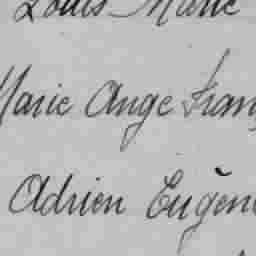 Louis Marie
Marie Ange Fran
Adrien Eugène